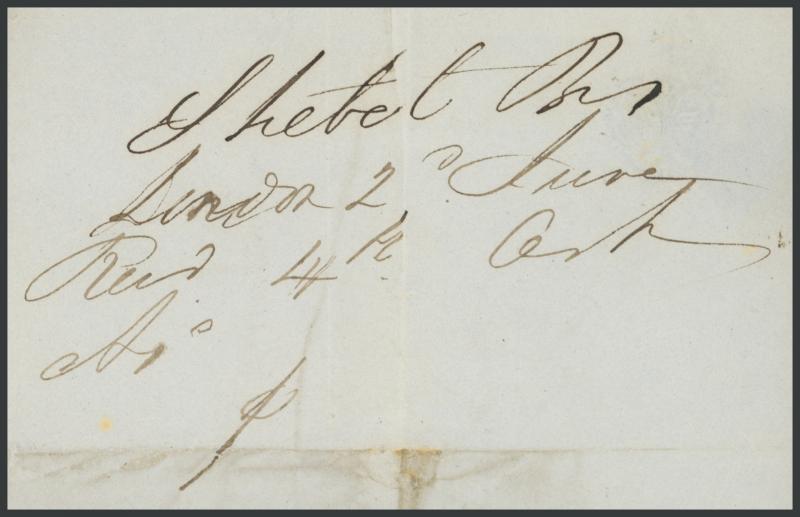 Shebel Brs
London 2d June
Recd 4th
Ad
p